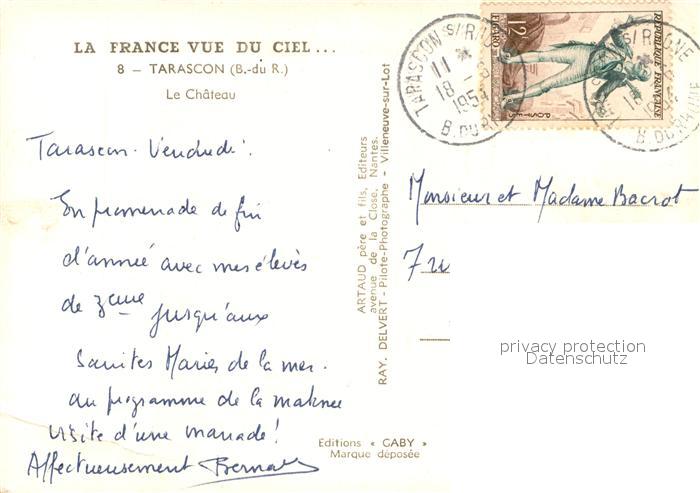 LA FRANCE VUE DU CIEL...
8 - TARASCON (B.-du R.)
Le Château
Tarascon. Vendredi.
En promenade de fin
d'année avec mes élèves
de 3eme jusqu'aux
Saintes Maries de la mer.
au programme de la matinée
visite d'une manade!
Affectueusement Bernard
ARTAUD père et fils, Editeurs
avenue de la Close, Nantes.
RAY. DELVERT - Pilote-Photographe - Villeneuve-sur-Lot
Editions « GABY »
Marque déposée
TARASCON S/ RHONE
11 *
18 - 6
1954
B. DU RHONE
12F
FIGARO
POSTES
REPUBLIQUE FRANÇAISE
Monsieur et Madame Bacrot
7 ru
privacy protection
Datenschutz